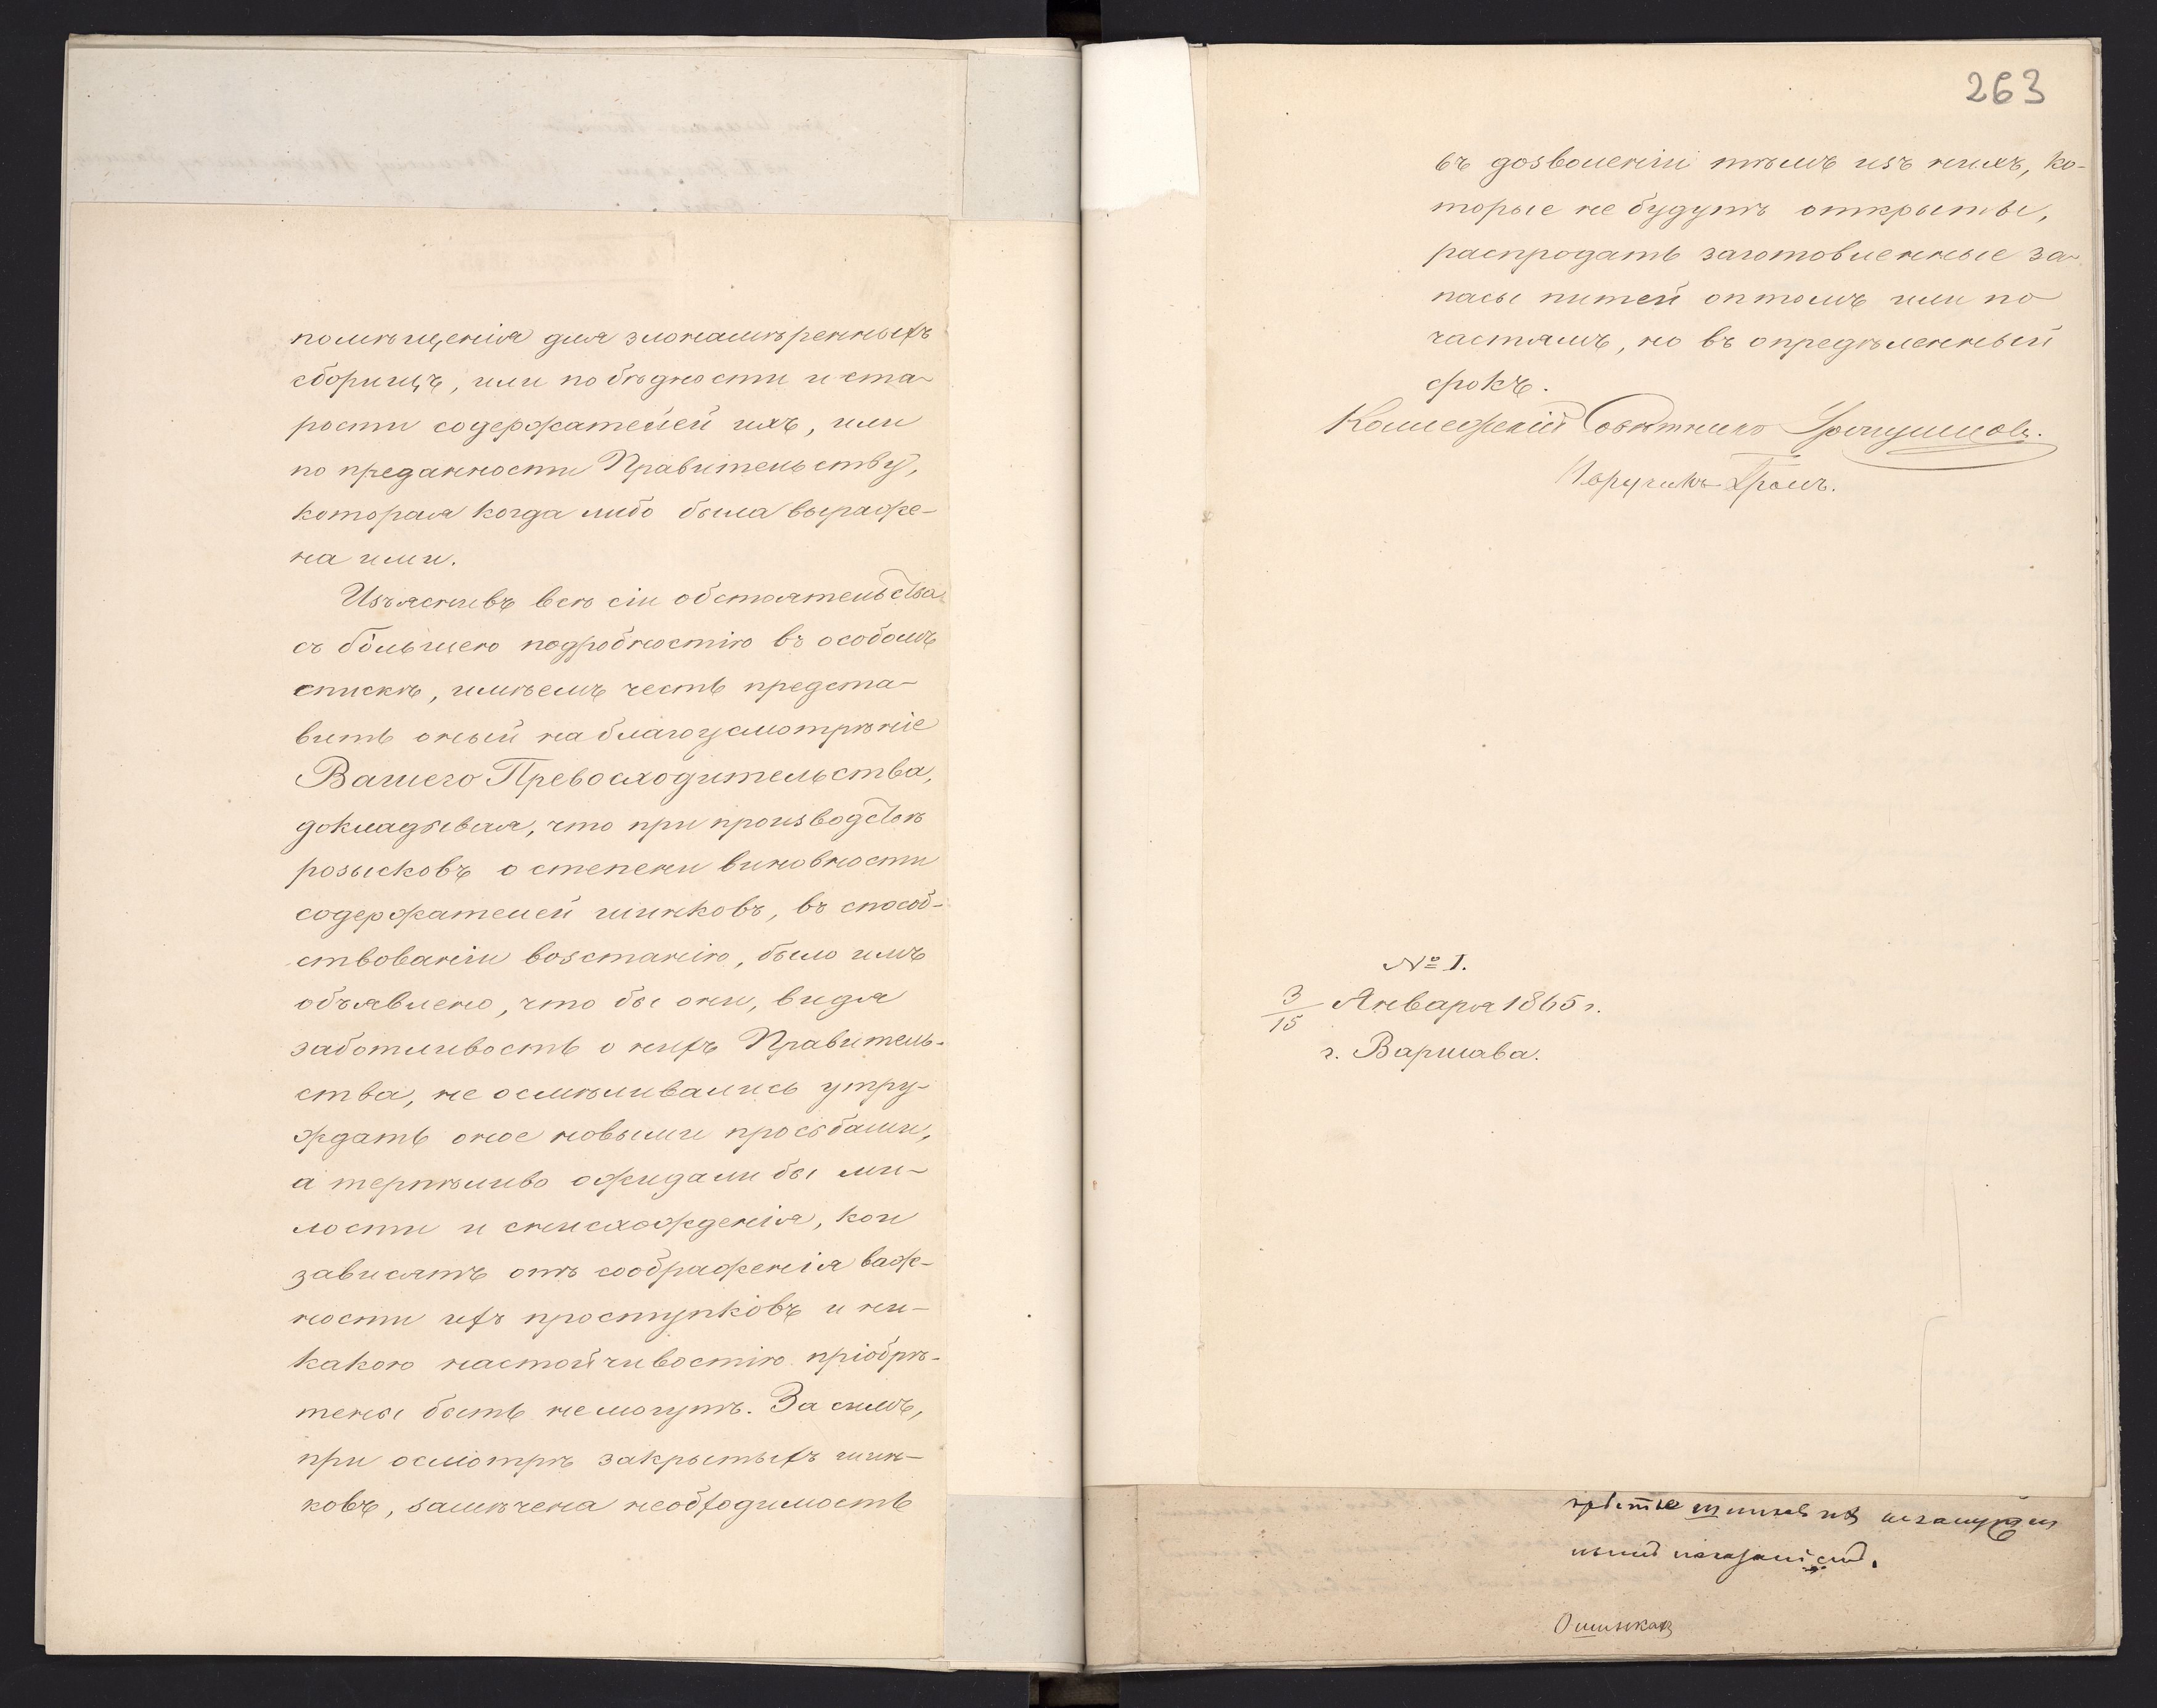 помѣщенія для злонамѣренныхъ
сборищъ, или по бѣдности и ста-
рости содержателей ихъ, или
по преданности Правительству,
которая когда либо была выраже-
на ими.
Изъяснивъ всѣ сіи обстоятельства
съ большею подробностію въ особомъ
спискѣ, имѣемъ честь предста-
вить оный на благоусмотрѣніе
Вашего Превосходительства,
докладывая, что при производствѣ
розысковъ о степени виновности
содержателей шинковъ, въ способ-
ствованіи возстанію, было имъ
объявлено, что бы они, видя
заботливость о нихъ Правитель-
ства, не осмѣливались утру-
ждать оное новыми просьбами,
а терпѣливо ожидали бы ми-
лости и снисхожденія, кои
зависятъ отъ соображенія важ-
ности ихъ проступковъ и ни-
какою настойчивостію пріобрѣ-
тены быть не могутъ. За симъ,
при осмотрѣ закрытыхъ шин-
ковъ, замѣчена необходимость
263
въ дозволеніи тѣмъ изъ нихъ, ко-
торые не будутъ открыты,
распродать заготовленные за-
пасы питей оптомъ или по
частямъ, но въ опредѣленный
срокъ.
Коллежскій Совѣтникъ
Поручикъ
№ 1.
3/15 Января 1865 г.
г. Варшава.